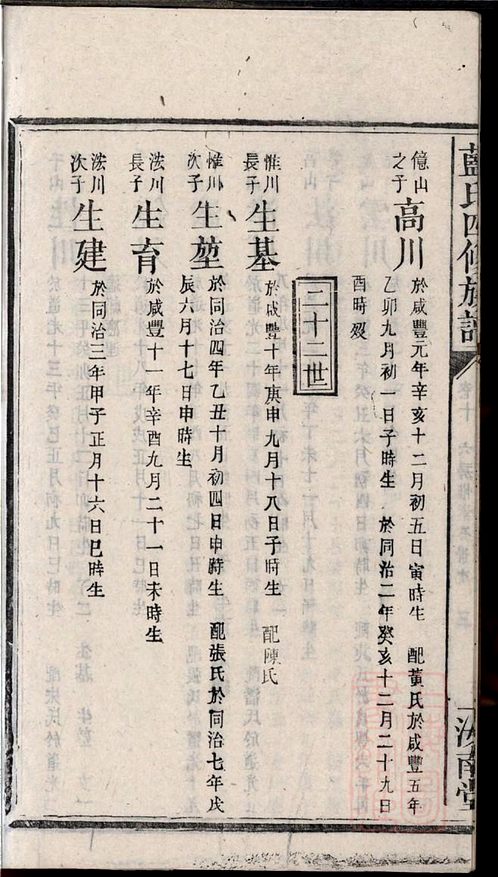 藍氏四修族譜
汝南堂
億山
之子
高川
於咸豐元年辛亥十二月初五日寅時生 配黃氏於咸豐五年
乙卯九月初一日子時生 於同治二年癸亥十二月二十九日
酉時歿
三十二世
惟川
長子
生基
於咸豐十年庚申九月十八日子時生 配陳氏
惟川
次子
生堃
於同治四年乙丑十月初四日申時生 配張氏於同治七年戊
辰六月十七日申時生
浤川
長子
生育
於咸豐十一年辛酉九月二十一日未時生
浤川
次子
生建
於同治三年甲子正月十六日巳時生